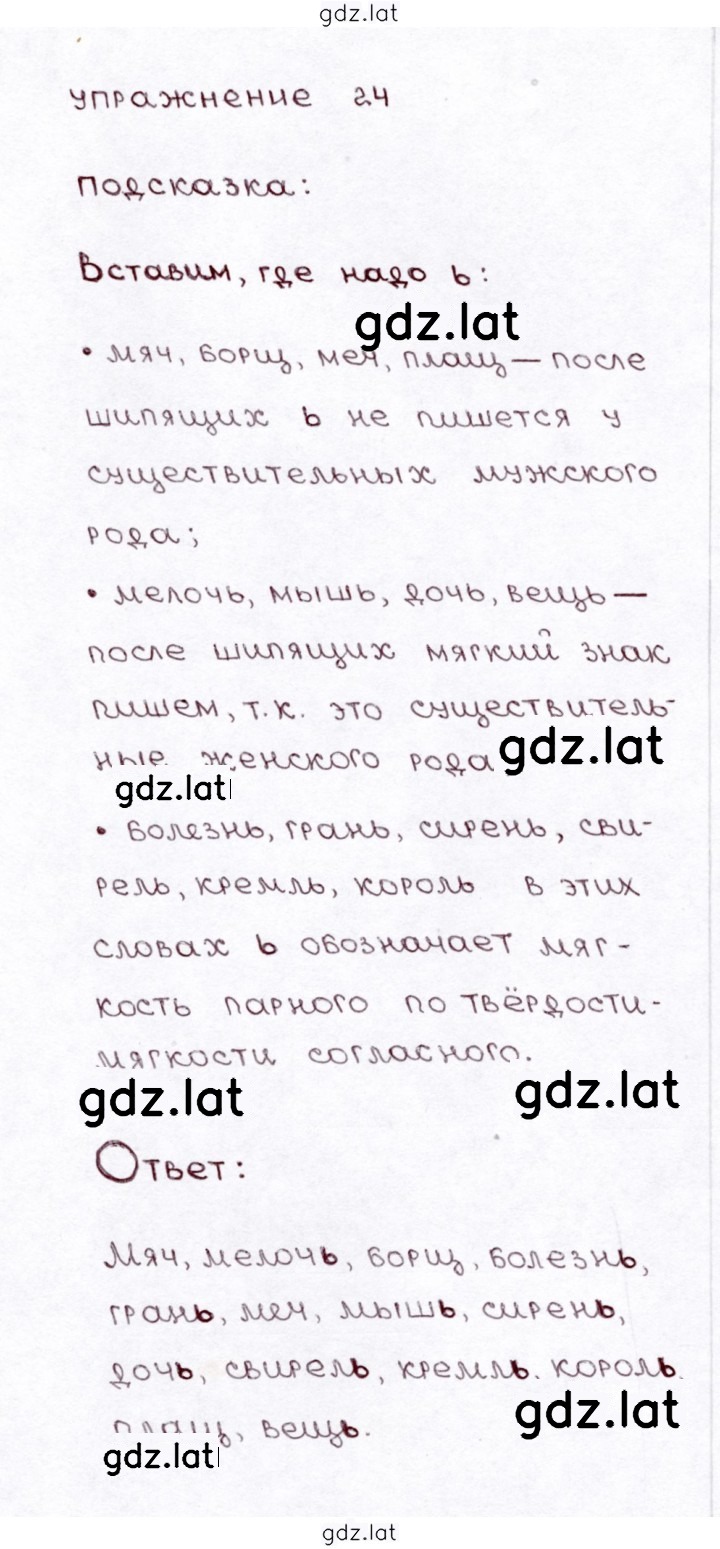 gdz.lat
упражнение 24
Подсказка:
Вставим, где надо ь:
gdz.lat
• мяч, борщ, меч, плащ — после
шипящих ь не пишется у
существительных мужского
рода;
• мелочь, мышь, дочь, вещь —
после шипящих мягкий знак
пишем, т.к. это существитель-
ные женского рода
gdz.lat
gdz.lat
• болезнь, грань, сирень, сви-
рель, кремль, король в этих
словах ь обозначает мяг-
кость парного по твёрдости-
мягкости согласного.
gdz.lat
gdz.lat
Ответ:
Мяч, мелочь, борщ, болезнь,
грань, меч, мышь, сирень,
дочь, свирель, кремль. король
gdz.lat
плащ, вещь.
gdz.lat
gdz.lat